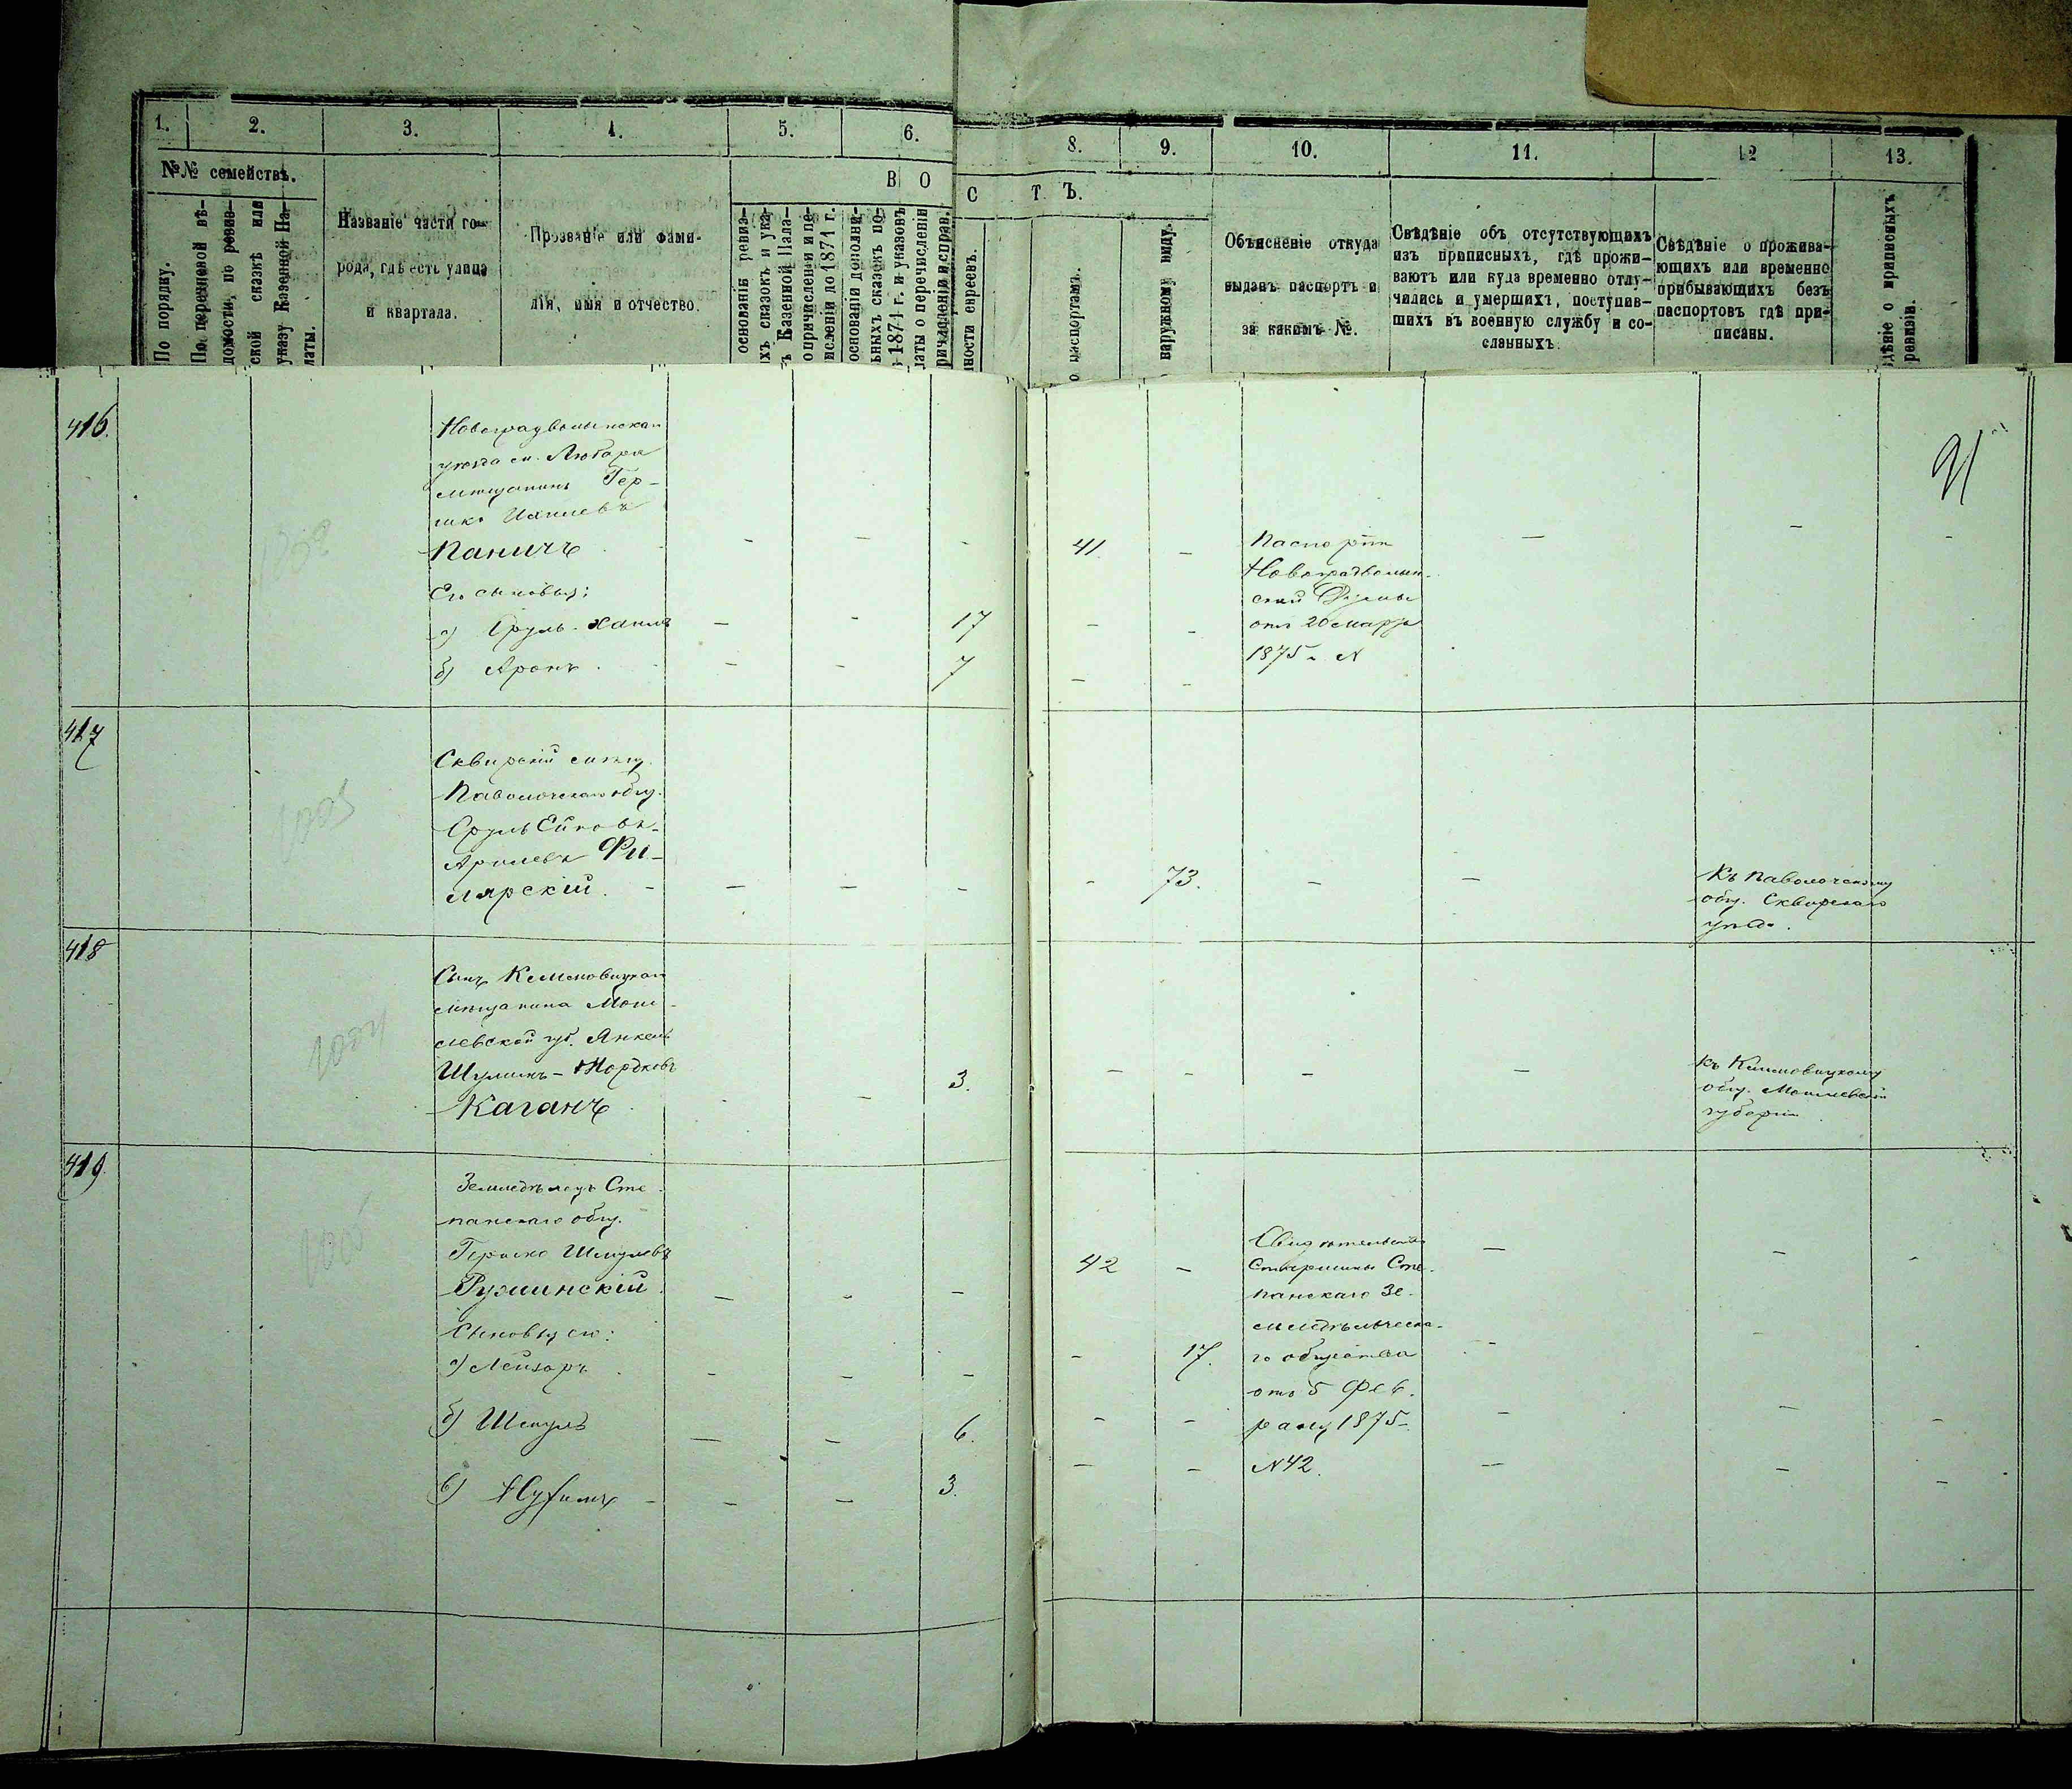 1. 2. 3. 4. 5. 6. 8. 9. 10. 11. 12 13.
№№ семействъ.
В О
С Т Ъ.
По порядку.
По перечневой вѣ-
домости, по ревиз-
ской сказкѣ или
указу Казенной Па-
латы.
Названіе части го-
рода, гдѣ есть улица
и квартала.
Прозваніе или фами-
лія, имя и отчество.
основаніе ревиз-
хъ сказокъ и ука-
ъ Казенной Пала-
о причисленіи и пе-
исленіи до 1871 г.
основаніи дополни-
ьныхъ сказокъ по-
1871 г. и указовъ
латы о перечисленіи
ричисленіи и справ.
ности евреевъ.
о паспортамъ.
наружному виду.
Объясненіе откуда
выданъ паспортъ и
за какимъ №.
Свѣдѣніе объ отсутствующихъ
изъ приписныхъ, гдѣ прожи-
ваютъ или куда временно отлу-
чились и умершихъ, поступив-
шихъ въ военную службу и со-
сланныхъ
Свѣдѣніе о прожива-
ющихъ или временно
прибывающихъ безъ
паспортовъ гдѣ при-
писаны.
дѣніе о приписныхъ
ревизіи.
91
416.
Новоградволынскаго
уѣзда м. Любара
мѣщанинъ Гер-
шко
Паничъ - - - 41. - - - -
Его сыновья:
а) Сруль-Хаимъ - - 17 - -
б) Аронъ. - - 7 - -
Паспортъ
Новоградволын-
ской Думы
отъ 20 марта
1875 г. N
417
1003
Сквирскій мѣщ.
Паволочскаго общ.
Сруль
Фи-
лярскій. - - - - - 73. - -
Къ Паволочскому
общ. Сквирскаго
уѣзда.
418
1004
Сынъ Климовицкаго
мѣщанина Моги-
левской губ. Янкель
Шулимъ-Мордковъ
Каганъ - 3. - - - -
Къ Климовицкому
общ. Могилевской
губерніи.
419.
Земледѣлецъ Сте-
панскаго общ.
Гершко Шмулевъ
Ружинскій. - - - 42 - - - -
Сыновья его:
а) Лейзоръ - - - - 17. -
б) Шмуль - - 6. - - - - -
в) Нухимъ - - - 3. - - - - -
Свидѣтельство
Старшины Сте-
панскаго Зе-
мледѣльческа-
го общества
отъ 5 Фев-
раля 1875
N42.